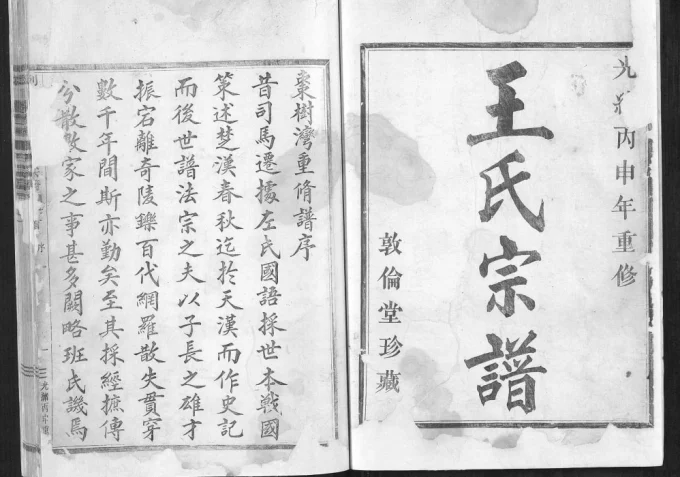 光緒丙申年重修
王氏宗譜
敦倫堂珍藏
棗樹灣重脩譜序
昔司馬遷據左氏國語採世本戰國
策述楚漢春秋迄於天漢而作史記
而後世譜法宗之夫以子長之雄才
振宕離奇陵鑠百代網羅散失貫穿
數千年間斯亦勤矣至其採經摭傳
分散數家之事甚多闕略班氏譏焉